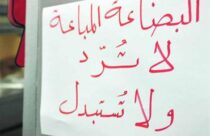 البضاعة المباعة
لا تُرد
ولا تُستبدل